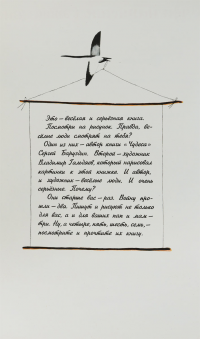 Это — весёлая и серьёзная книга.
Посмотри на рисунок. Правда, ве-
сёлые люди смотрят на тебя?
Один из них — автор книги «Чудеса»
Сергей Баруздин. Второй — художник
Владимир Гальдяев, который нарисовал
картинки к этой книжке. И автор,
и художник — весёлые люди. И очень
серьёзные. Почему?
Они старше вас — раз. Войну про-
шли — два. Пишут и рисуют не только
для вас, а и для ваших пап и мам —
три. Ну, а четыре, пять, шесть, семь, —
посмотрите и прочтите их книгу.